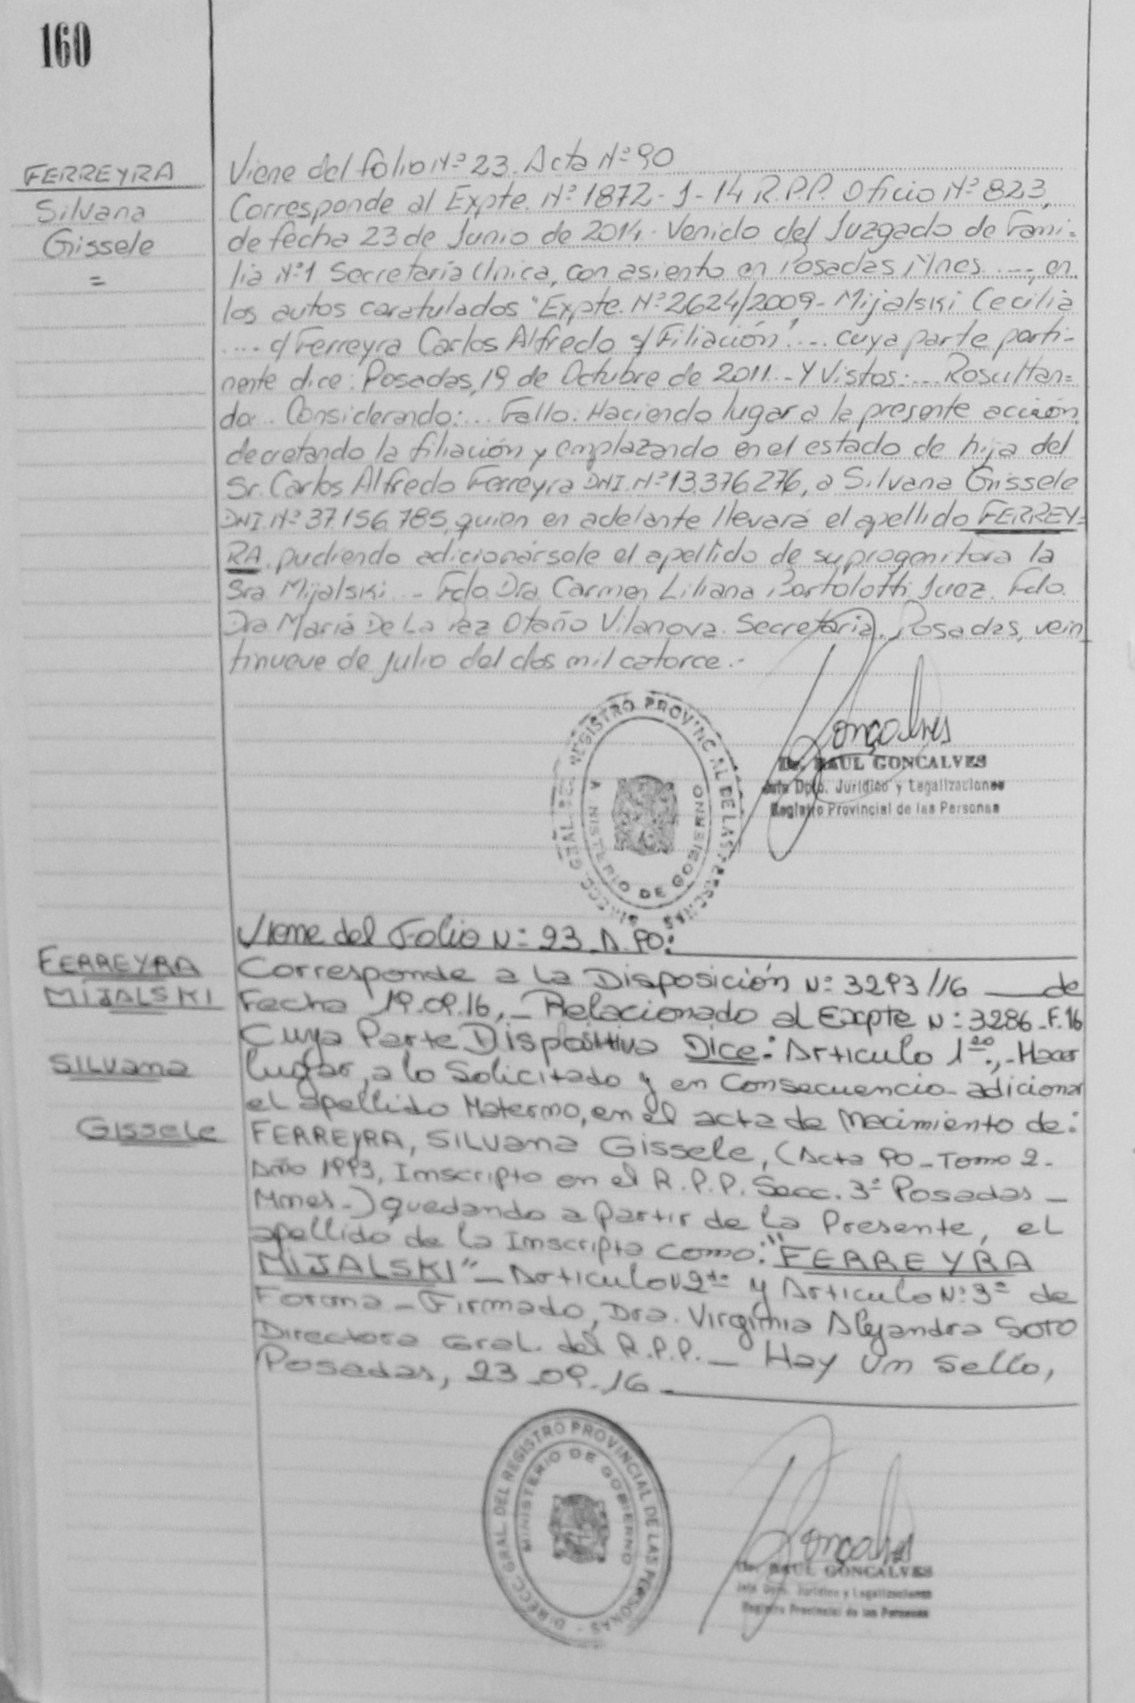 160
FERREYRA
Silvana
Gissele
=
Viene del folio Nº 23. Acta Nº 90
Corresponde al Expte. Nº 1872-J-14 R.P.P. Oficio Nº 823,
de fecha 23 de Junio de 2014. Venido del Juzgado de Fami-
lia Nº1 Secretaría Unica, con asiento en Posadas Mnes ...., en
los autos caratulados "Expte. Nº 2624/2009- Mijalski Cecilia
.... c/ Ferreyra Carlos Alfredo s/ Filiación" .... cuya parte perti-
nente dice: Posadas, 19 de Octubre de 2011.- Y Vistos:... Resultan=
do... Considerando:... Fallo: Haciendo lugar a la presente acción,
decretando la filiación y emplazando en el estado de hija del
Sr. Carlos Alfredo Ferreyra DNI. Nº 13.376.276, a Silvana Gissele
DNI. Nº 37.156.785, quien en adelante llevará el apellido FERREY=
RA, pudiendo adicionársole el apellido de su progenitora la
Sra Mijalski .- Fdo. Dra Carmen Liliana Bortolotti Juez. Fdo.
Dra María De La Paz Otaño Vilanova. Secretaria. Posadas, vein
tinueve de julio del dos mil catorce.-
DIRECC. GRAL. DEL REGISTRO PROVINCIAL DE LAS PERSONAS
MINISTERIO DE GOBIERNO
Gonçalves
Dr. RAUL GONCALVES
Jefe Dpto. Jurídico y Legalizaciones
Registro Provincial de las Personas
FERREYRA
MIJALSKI
SILVANA
Gissele
Viene del Folio N: 23 A. 90:
Corresponde a la Disposición N: 3293/16 ___ de
Fecha 19.09.16,_ Relacionado al Expte N: 3286-F.16
Cuya Parte Dispositiva Dice: Articulo 1ro., - Hacer
lugar, a lo Solicitado y en Consecuencia adicionar
el apellido Materno, en el acta de Nacimiento de:
FERREYRA, SILVANA Gissele, (Acta 90-Tomo 2-
Año 1993, Inscripto en el R.P.P. Secc. 3ª Posadas -
Mnes-) quedando a partir de la Presente, el
apellido de la Inscripta como: "FERREYRA
MIJALSKI" - Articulo N 2do y Articulo N: 3º de
Forma - Firmado, Dra. Virginia Alejandra SOTO
Directora Gral. del R.P.P. _ Hay un Sello,
Posadas, 23-09-16
DIRECC. GRAL. DEL REGISTRO PROVINCIAL DE LAS PERSONAS
MINISTERIO DE GOBIERNO
Gonçalves
Dr. RAUL GONCALVES
Jefe Dpto. Jurídico y Legalizaciones
Registro Provincial de las Personas